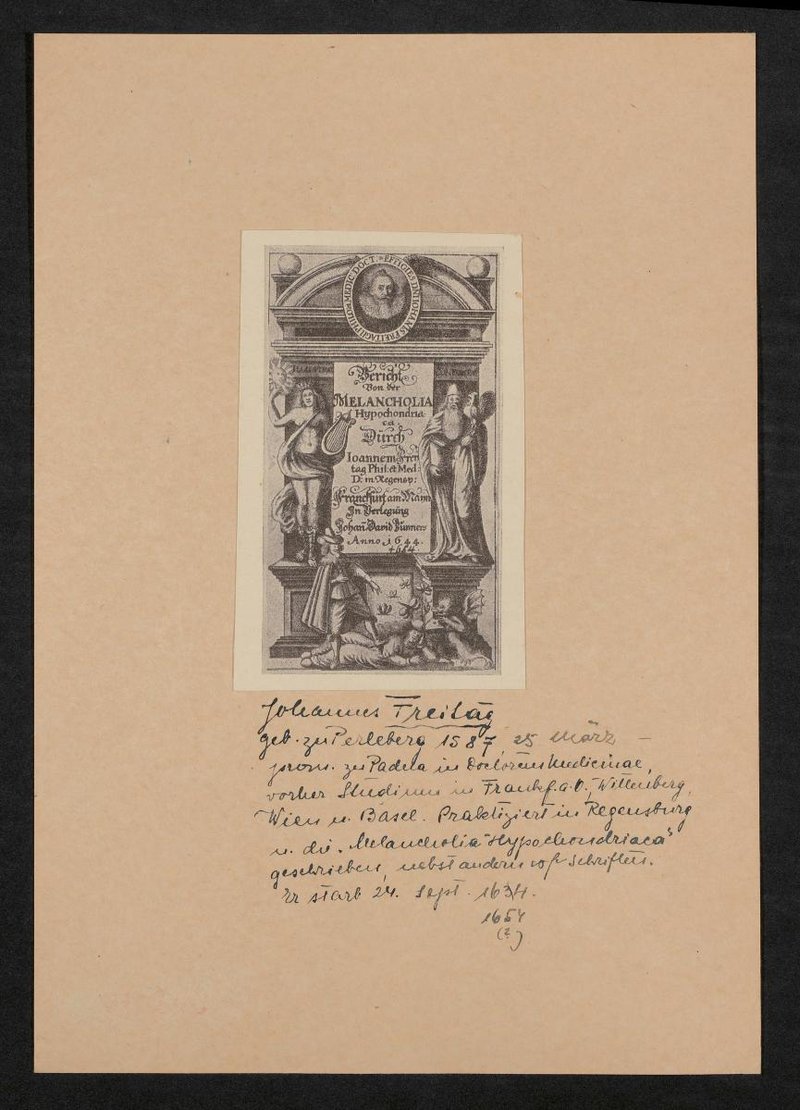 EFFIGIES DNI IOHANIS FREITAGII PHIL. & MEDIC. DOCT.
Bericht
Von der
MELANCHOLIA
Hypochondria-
ca
Durch
Ioannem Frey
tag Phil: et Med:
D: in Regensp:
Franckfurt am Mayn
In Verlegung
Johan David Zunners
Anno 1644.
Johannes Freitag
geb. zu Perleberg 1587, 25 März –
prom. zu Padua in Doctorem Medicinae,
vorher Studium in Frankf. a. O., Wittenberg,
Wien u. Basel. Praktiziert in Regensburg
u. die "Melancholia Hypochondriaca"
geschrieben, nebst andern Schriften.
Er starb 24. Sept. 1634.
1654
(?)